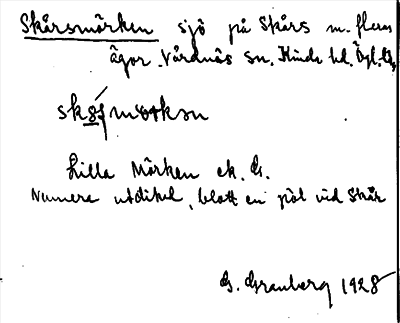 Skårsmörken sjö på Skårs m. fleras
ägor. Vårdnäs sn. Kinds hd. Ögl.
Lilla Mörken ek. G.
Numera utdikad, blott en pöl vid Skår
G. Granberg 1928